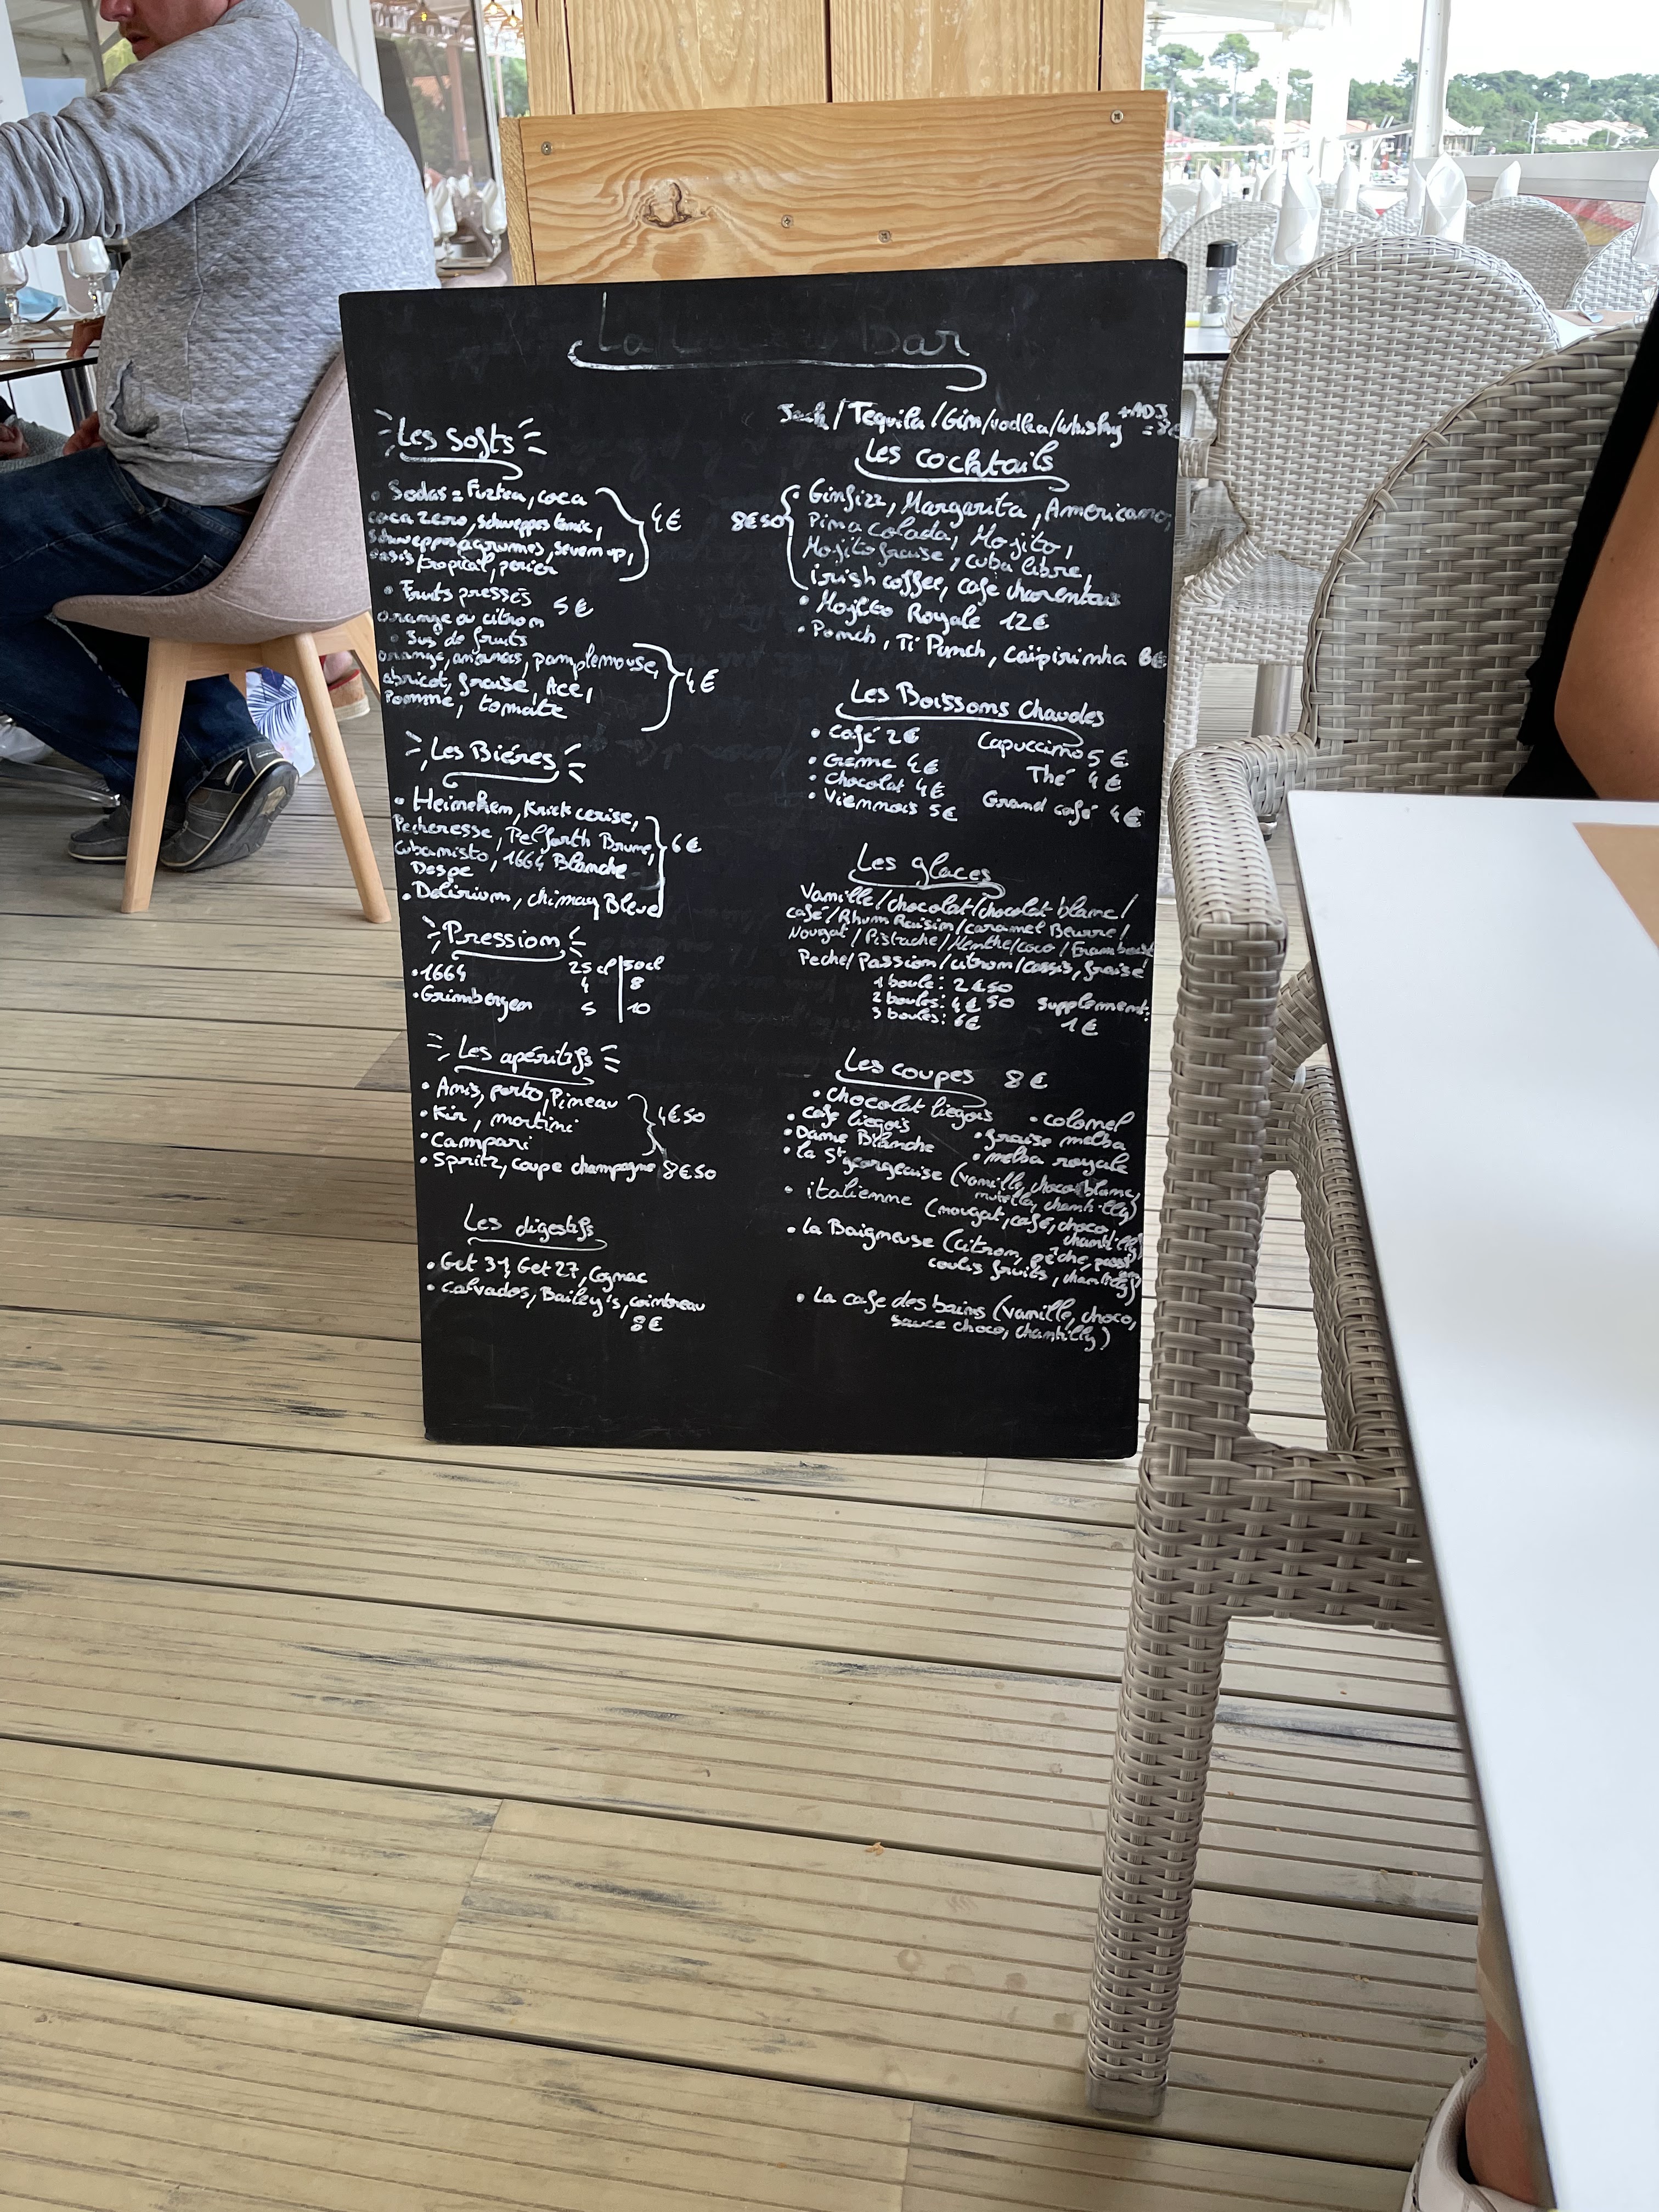 La Bar
Les Softs
• Sodas = Fuztea, coca
coca zero, schweppes tonic,
schweppes agrumes, seven up,
oasis tropical, perier
4€
• Fruits pressés
orange ou citron
5€
• Jus de fruits
orange, ananas, pamplemouse,
abricot, fraise, Ace,
Pomme, tomate
4€
Les Biéres
• Heineken, Kriek cerise,
Pecheresse, Pelforth Brune,
Cubanisto, 1664 Blanche
Despe
• Delirium, chimay Bleue
6€
Pression
25cl | 50cl
• 1664 4 8
• Grimbergen 5 10
Les apéritifs
• Anis, porto, Pineau
• Kir, martini
• Campari
4€50
• Spritz, coupe champagne 8€50
Les digestifs
• Get 31, Get 27, Cognac
• calvados, Bailey's, cointreau
8€
Jack / Tequila / Gin / vodka / whisky
Les cocktails
8€50
• Ginfizz, Margarita, Americano,
Pina colada, Mojito,
Mojito fraise, cuba libre
irish coffee, cafe charentais
• Mojito Royale 12€
• Ponch, Ti Punch, caïpirinha
Les Boissons Chaudes
• Café 2€ Capuccino 5€
• Creme 4€ Thé 4€
• Chocolat 4€
• Viennois 5€ Grand café 4€
Les glaces
Vanille / chocolat / chocolat blanc /
café / Rhum Raisin / caramel Beurre /
Nougat / Pistache / Menthe / coco / Framboise
Peche / Passion / citron / cassis, fraise
1 boule: 2€50
2 boules: 4€50
3 boules: 6€
supplement:
1€
Les coupes 8€
• chocolat liegois
• cafe liegois • colonel
• Dame Blanche • fraise melba
• melba royale
• la St georgeaise (vanille, choco blanc,
nutella, chantilly)
• italienne (nougat, café, choco,
chantilly)
• la Baigneuse (citron, pêche,
coulis fruits, chantilly)
• La cafe des bains (vanille, choco,
sauce choco, chantilly)